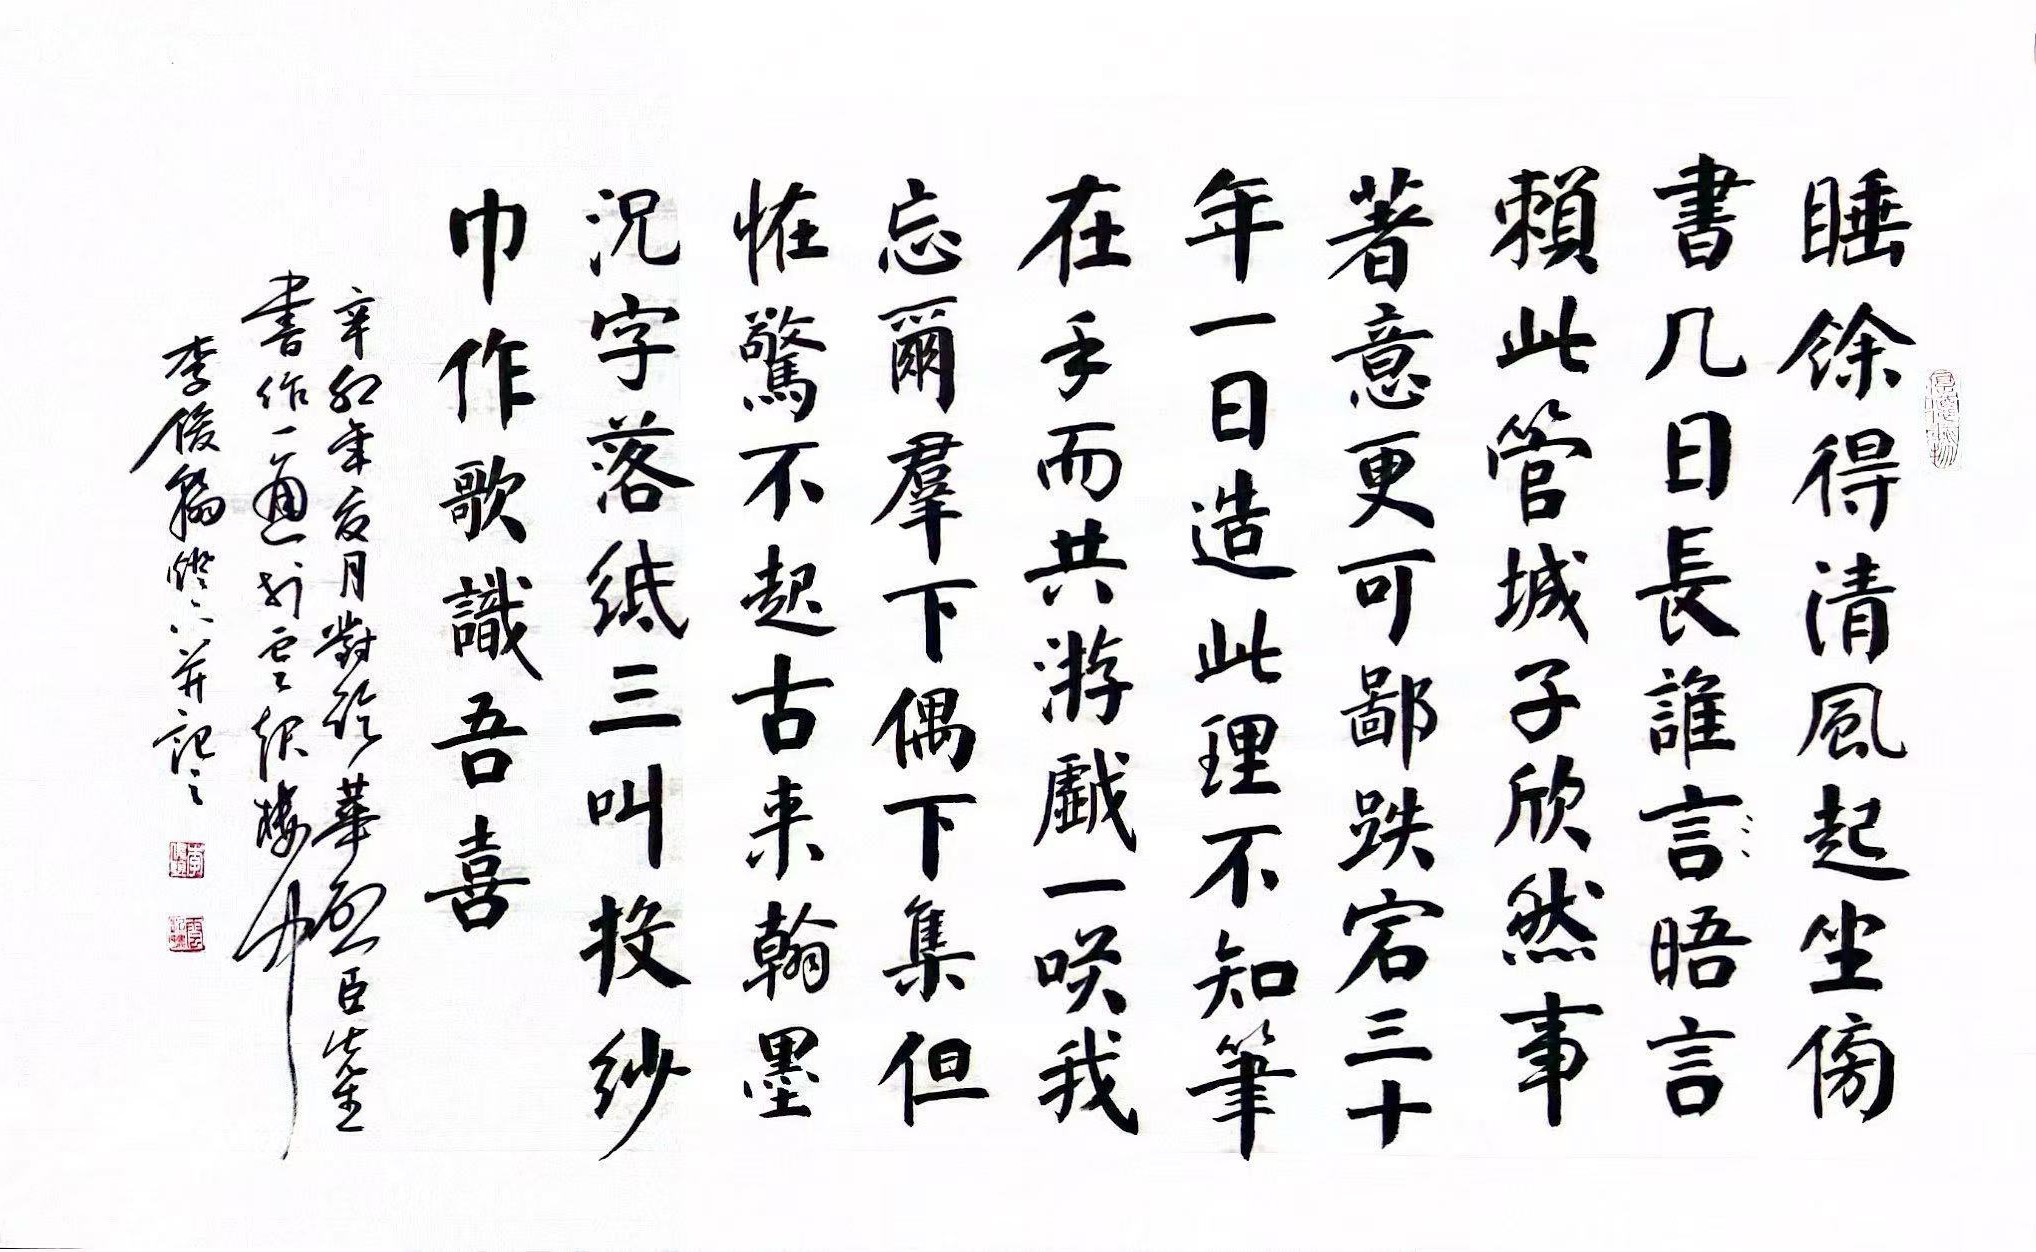 睡餘得清風起坐傍
書几日長誰言晤言
賴此管城子欣然事
著意更可鄙跌宕三十
年一日造此理不知筆
在手而共游戲一咲我
忘爾羣下偶下集但
恠驚不起古来翰墨
況字落紙三叫投紗
巾作歌識吾喜
辛卯年夏月對臨華
臣先生
書作一通於雲起樓中
李俊 并記之